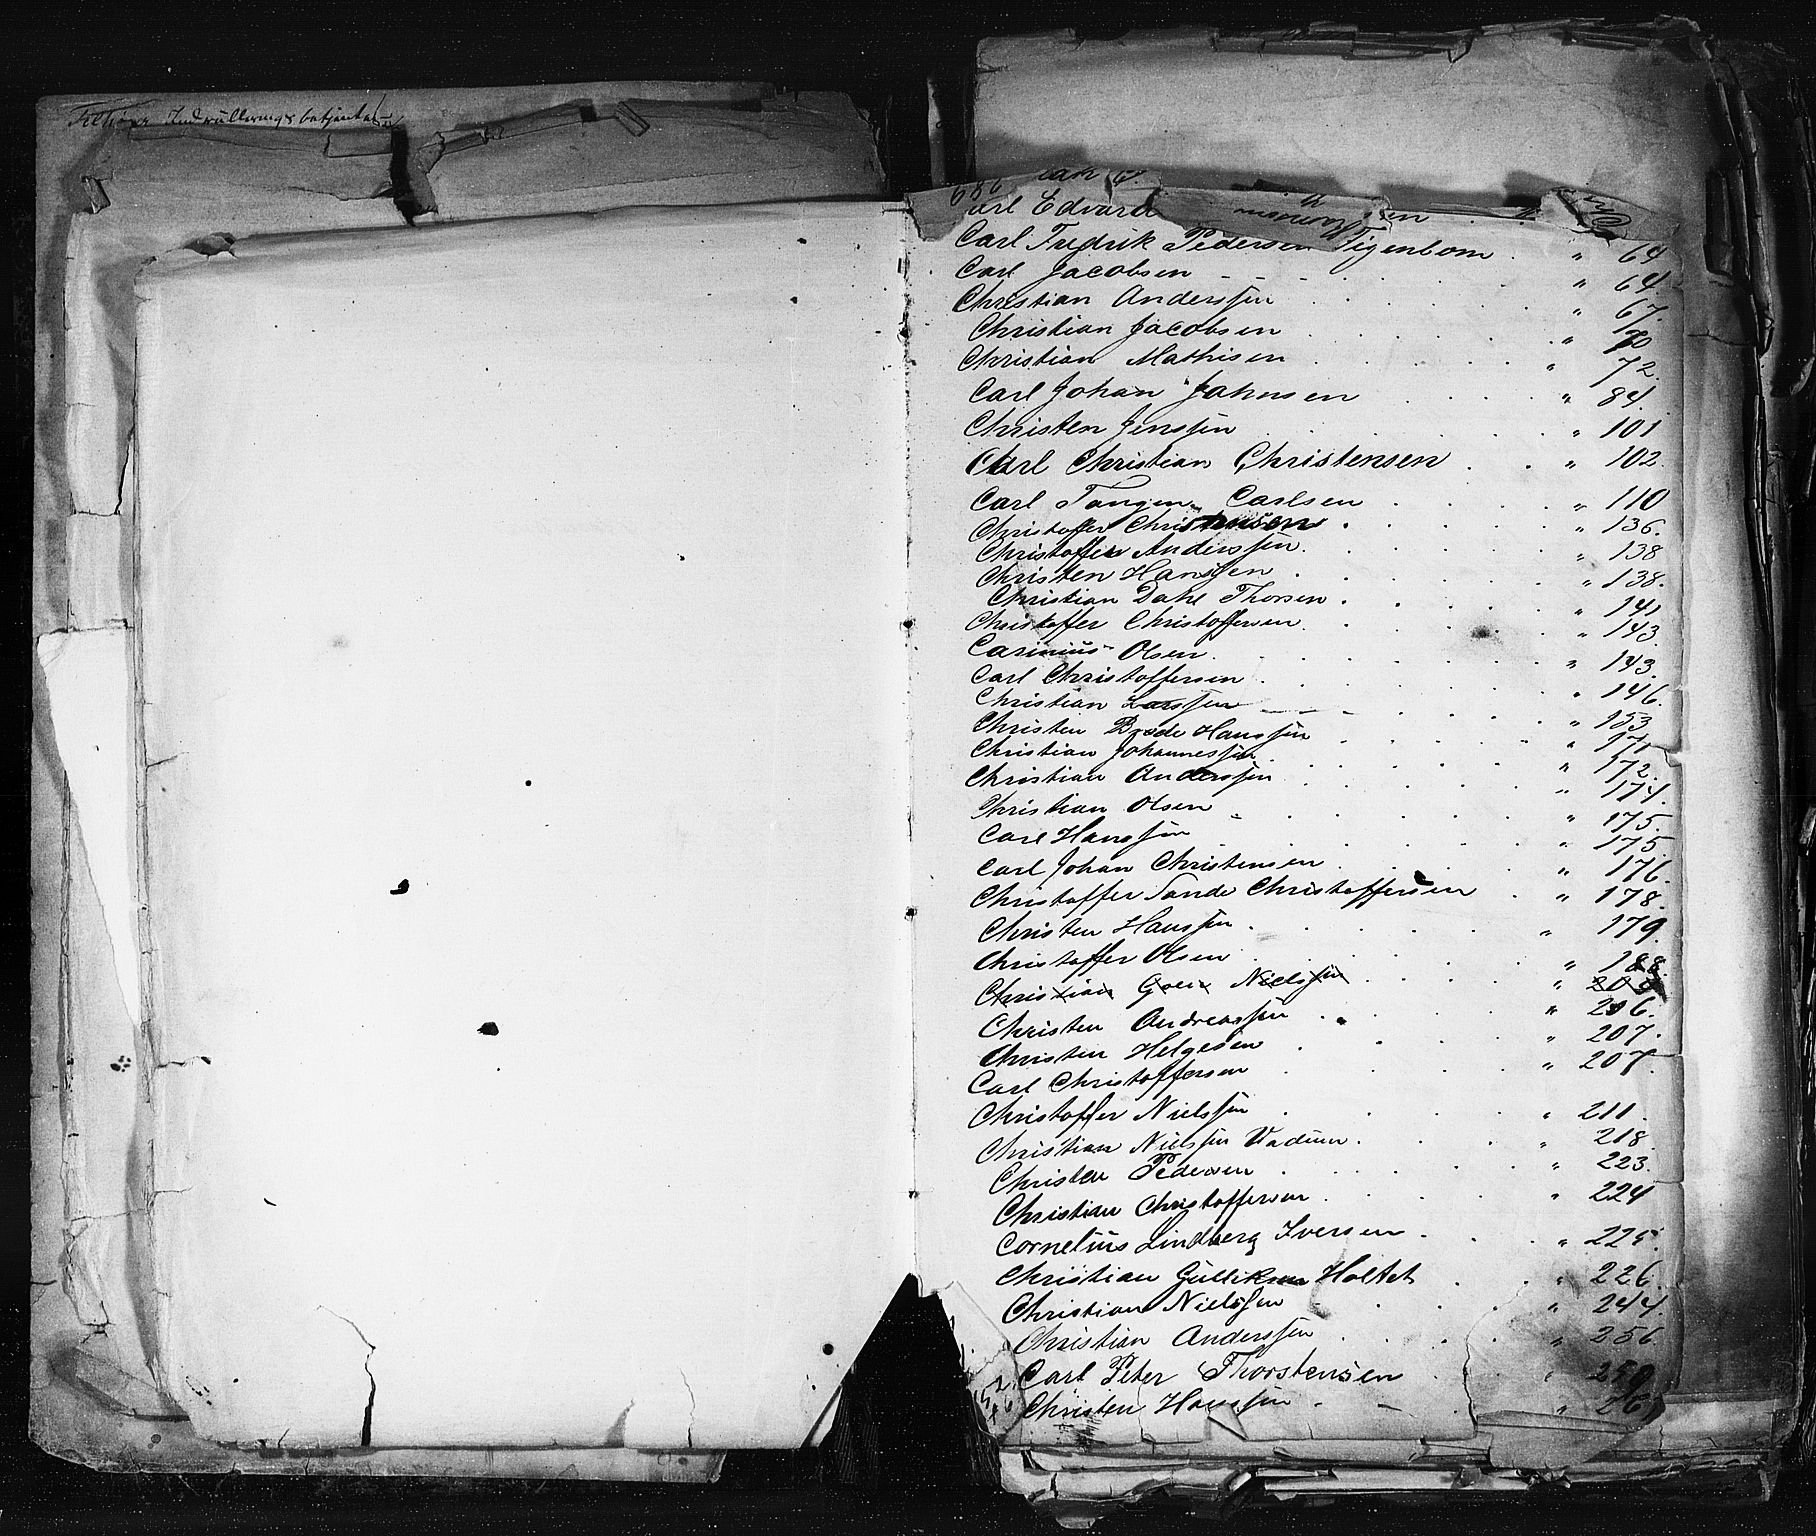 Tilhører Indrulleringsbetjenten
686
arl Edvard
Carl Fredrik Pedersen Figenbom " 64
Carl Jacobsen " 64
Christian Anderssen " 67.
Christian Jacobsen " 70
Christian Mathisen " 72.
Carl Johan Johnsen " 84.
Christen Jenssen " 101
Carl Christian Christensen " 102.
Carl Tangen Carlsen " 110
Christoffer Christensen " 136.
Christoffer Anderssen " 138
Christen Hanssen " 138.
Christian Dahl Thorsen " 141
Christoffer Christoffersen " 143
Carinius Olsen " 143.
Carl Christoffersen " 146.
Christian Larssen " 153
Christen Brede Hanssen " 171
Christian Johannessen " 172.
Christian Anderssen " 174.
Christian Olsen " 175.
Carl Hanssen " 175.
Carl Johan Christensen " 176.
Christoffer Sande Christoffersen " 178.
Christen Hanssen " 179.
Christoffer Olsen " 188.
Christian Nielssen
Christen Andreassen " 206.
Christen Helgesen " 207.
Carl Christoffersen " 207.
Christoffer Nielssen " 211.
Christian Nielssen Vadum " 218.
Christen Pedersen " 223.
Christian Christoffersen " 224
Cornelius Lindberg Iversen " 225.
Christian Gulliksen Holtet " 226.
Christian Nielssen " 244.
Christian Anderssen " 256.
Carl Peter Thorstensen " 259
Christen Hanssen "